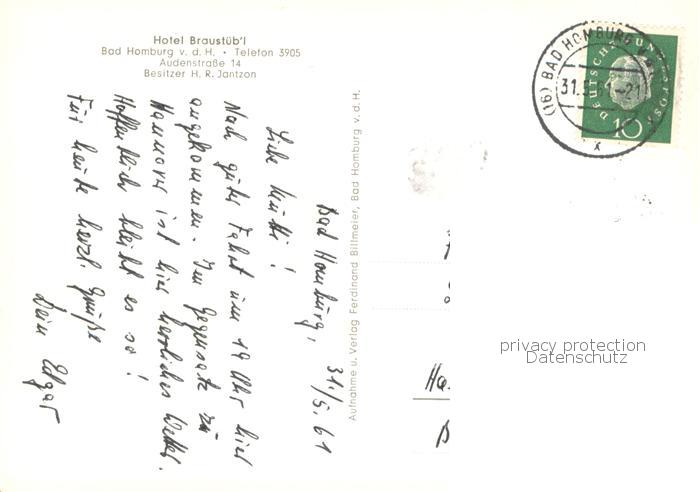 Hotel Braustüb'l
Bad Homburg v. d. H. • Telefon 3905
Audenstraße 14
Besitzer H. R. Jantzon
Bad Homburg, 31./5. 61
Liebe Mutti!
Nach guter Fahrt um 19 Uhr hier
angekommen. Im Gegensatz zu
Hannover ist hier herrliches Wetter.
Hoffentlich bleibt es so!
Für heute herzl. Grüße
Dein Edgar
Aufnahme u. Verlag Ferdinand Billmeier, Bad Homburg v. d. H.
(16) BAD HOMBURG
31.5.61-21
x
DEUTSCHE BUNDESPOST
10
Ha
privacy protection
Datenschutz